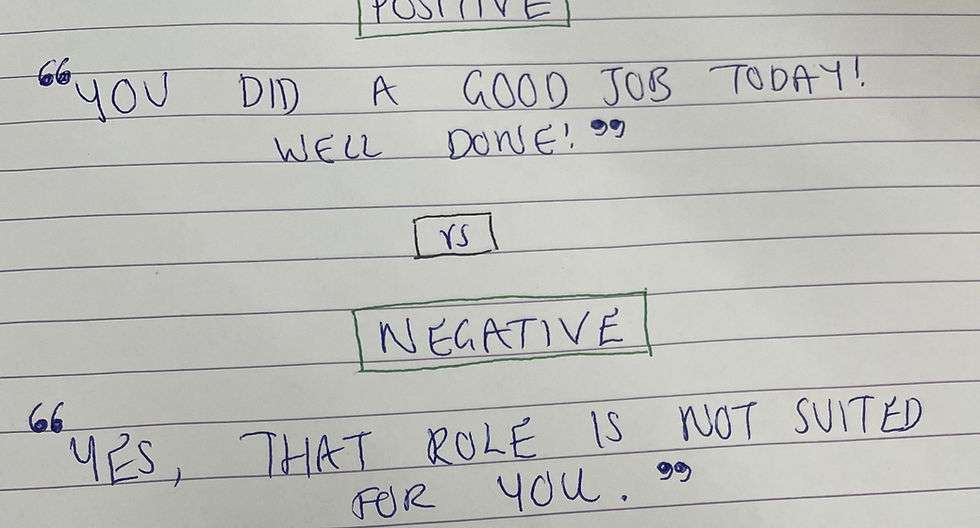 POSITIVE
“YOU DID A GOOD JOB TODAY!
WELL DONE!”
vs
NEGATIVE
“YES, THAT ROLE IS NOT SUITED
FOR YOU.”